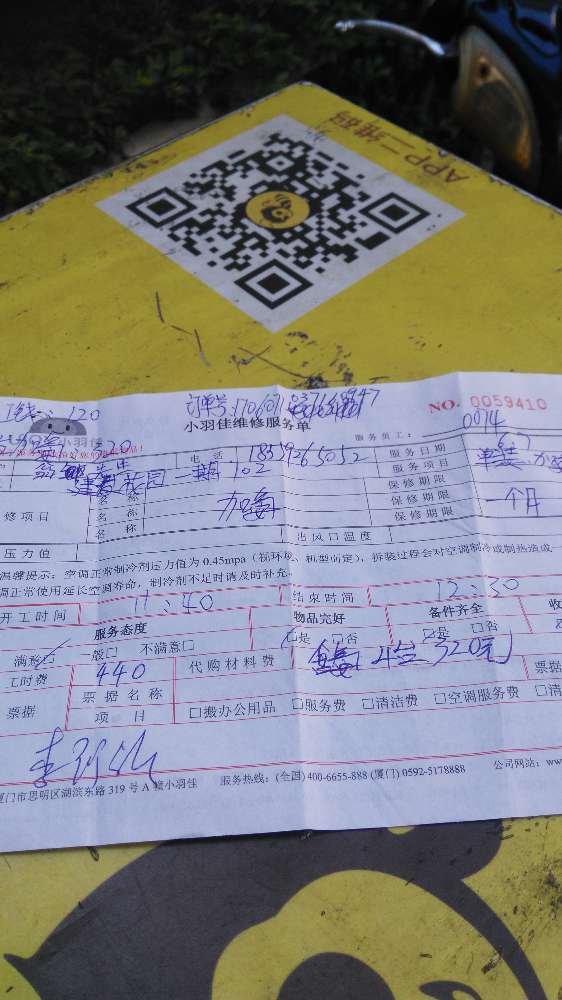 APP二维码
120
订单号:
小羽佳维修服务单
NO. 0059410
小羽佳
服务员工: 0014
电话
服务日期
花园一期 102
服务项目
名称
保修期限
修项目
名称
加氟
保修期限
一个月
名称
保修期限
压力值
出风口温度
温馨提示:空调正常制冷剂压力值为0.45mpa(视环境、机型而定),拆装过程会对空调制冷或制热造成一
调正常使用延长空调寿命,制冷剂不足时请及时补充。
开工时间
11:40
结束时间
12:30
服务态度
物品完好
备件齐全
收
满意□ 一般□ 不满意□
□是 □否
□是 □否
工时费
440
代购材料费
320元
票据
票据名称
票据
项目
□搬办公用品 □服务费 □清洁费 □空调服务费 □清
厦门市思明区湖滨东路319号A幢小羽佳
服务热线:(全国)400-6655-888 (厦门)0592-5178888
公司网站:ww